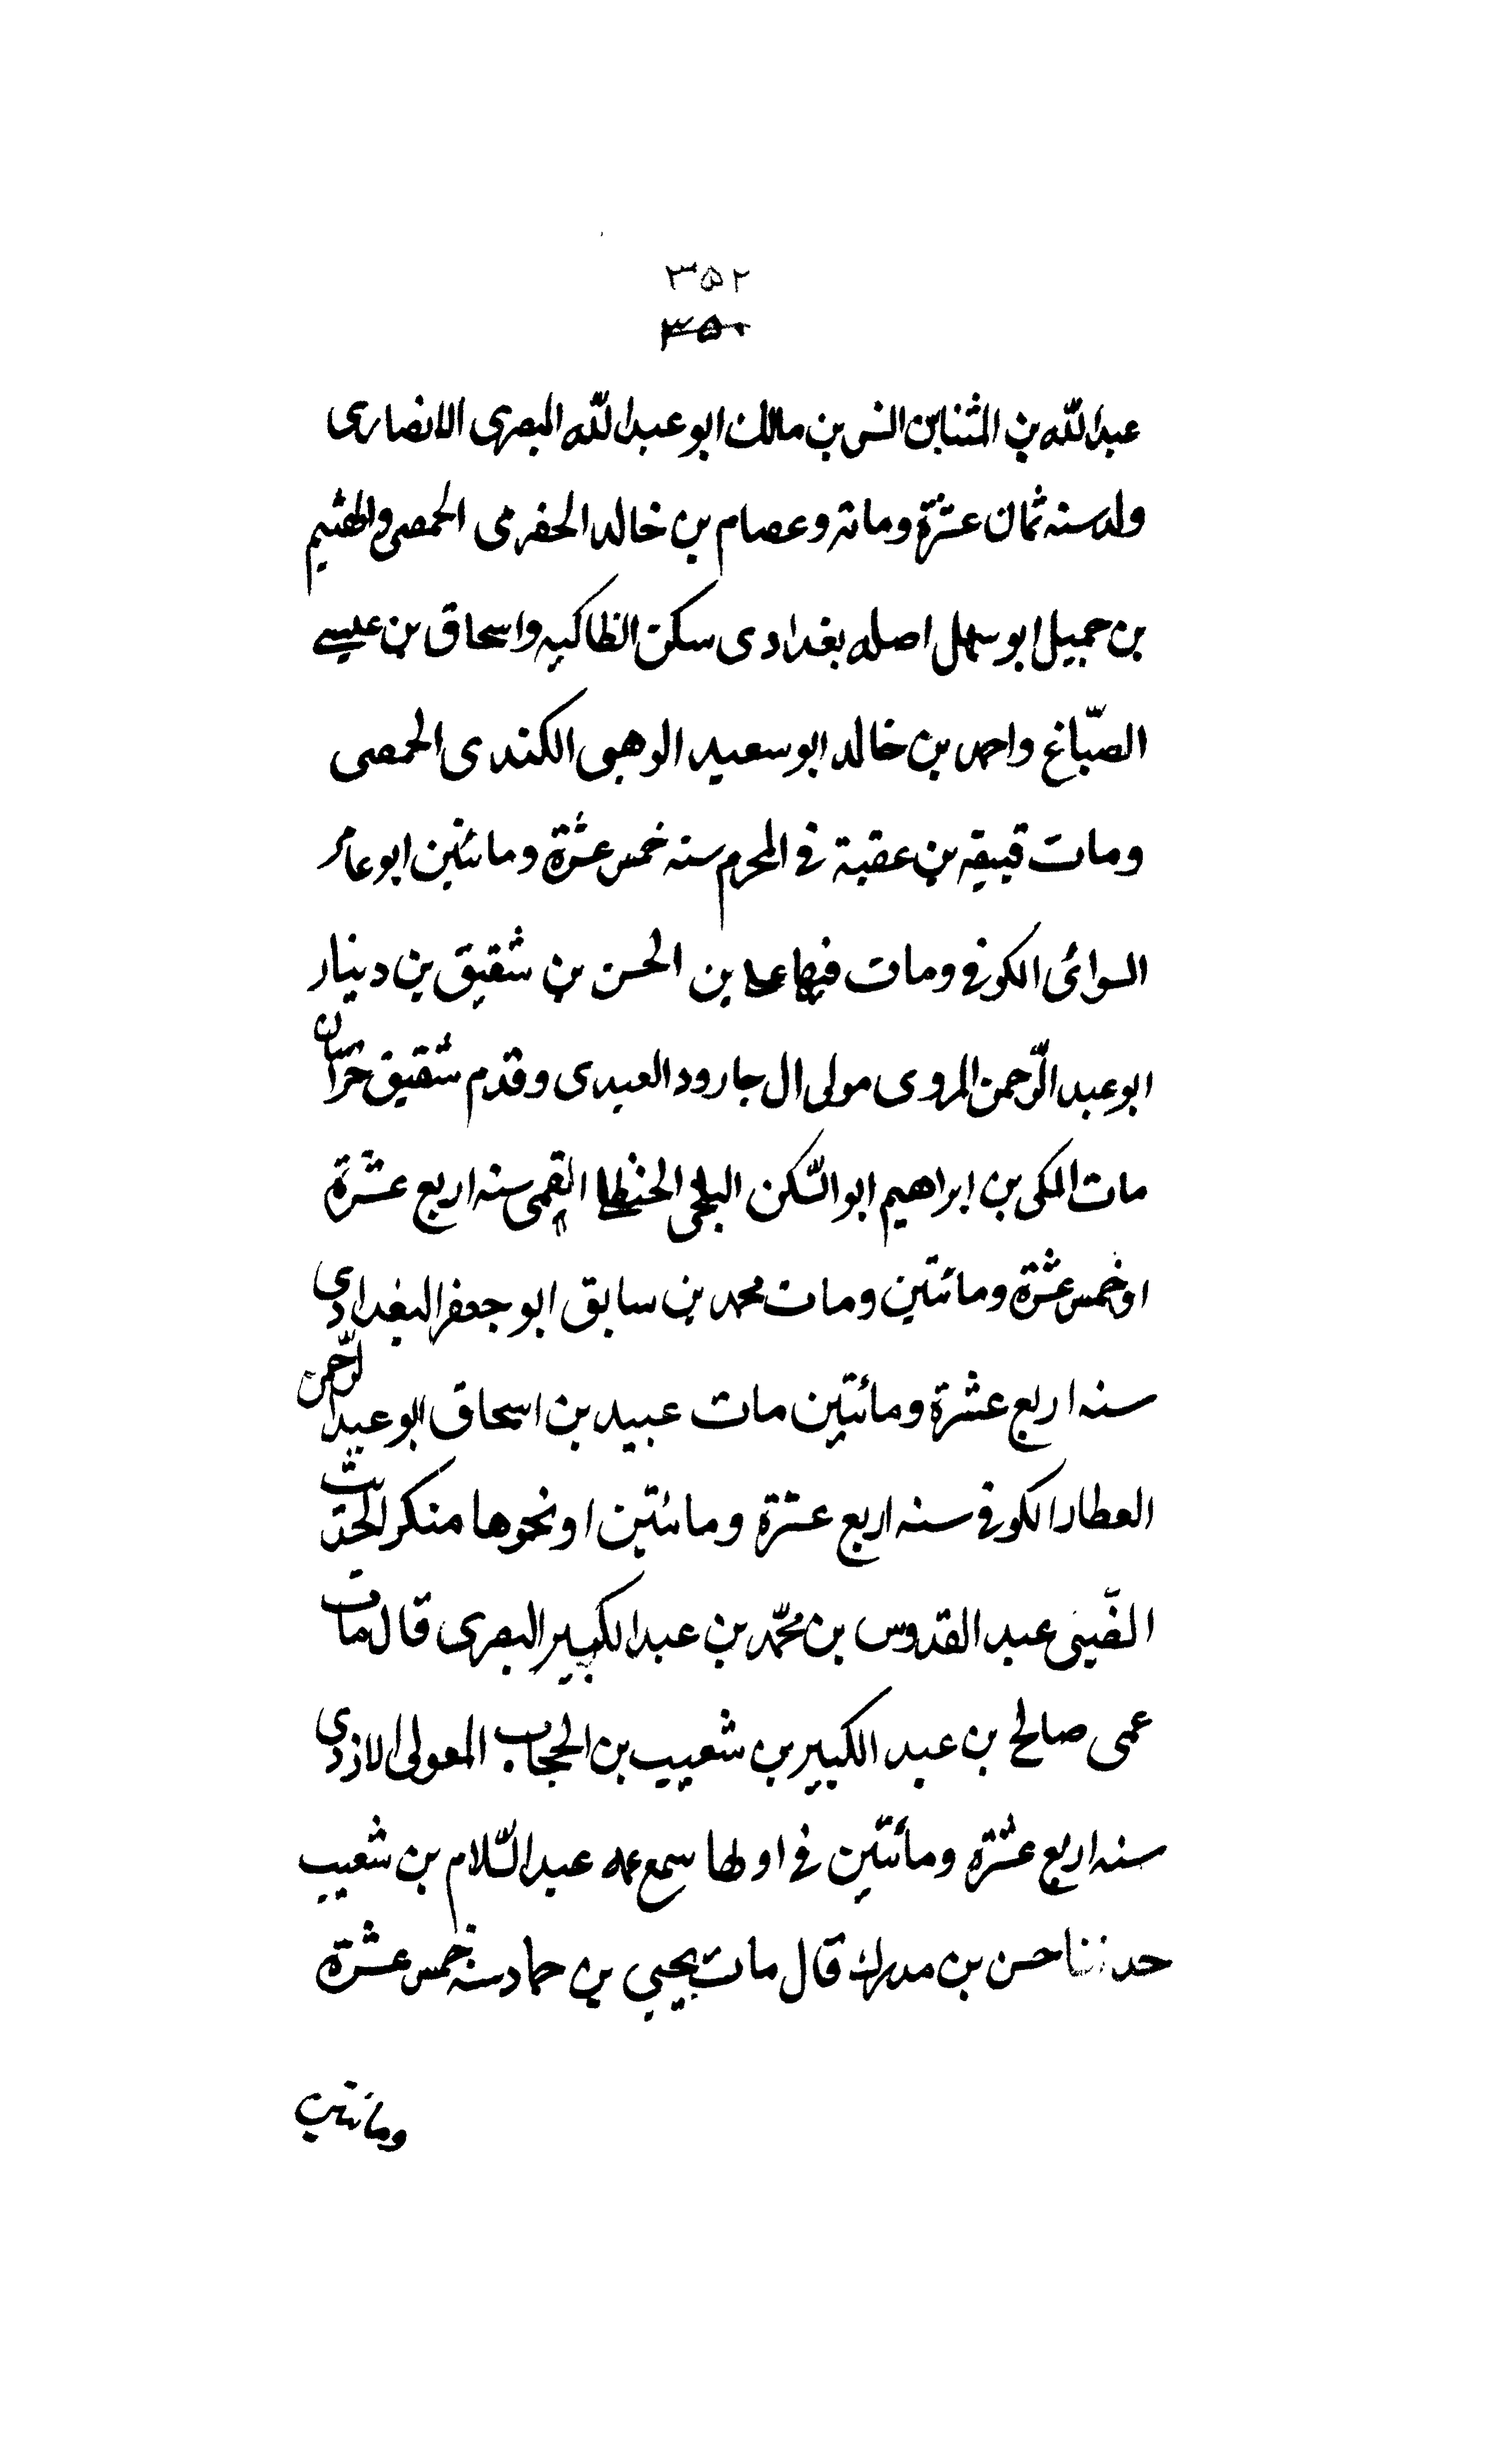 ۳۵۲
۳۵۰
عبدالله بن المثنا بن انس بن مالك ابو عبدالله البصرى الانصارى
ولد سنه ثمان عشرة ومائة وعصام بن خالد الحضرمى الحمصى والهثيم
بن جميل ابو سهل اصله بغدادى سكن انطاكيه واسحاق بن عيسى
الصبّاغ واحمد بن خالد ابو سعيد الوهبى الكندى الحمصى
ومات قبيصه بن عقبة فى المحرم سنه خمس عشرة ومائتين ابو عامر
السوائى الكوفى ومات فيها على بن الحسن بن شقيق بن دينار
ابو عبد الرّحمن المروى مولى ال جارود العبدى وقدم شقيق خراسان
مات المكى بن ابراهيم ابو السّكن البلخى الحنظلى التيمى سنه اربع عشرة
او خمس عشرة ومائتين ومات محمد بن سابق ابو جعفر البغدادى
سنه اربع عشرة ومائتين مات عبيد بن اسحاق ابو عبد الرّحمن
العطار الكوفى سنه اربع عشرة ومائتين او نحوها منكر الحديث
الضّبى عبد القدوس بن محمّد بن عبد الكبير البصرى قال مات
عمى صالح بن عبد الكبير بن شعيب بن الحجاب المعولى الازدى
سنه اربع عشرة ومائتين فى اولها سمع عمه عبد السّلام بن شعيب
حدثنا حسن بن مدرك قال مات يحيى بن حماد سنه خمس عشرة
ومائتين